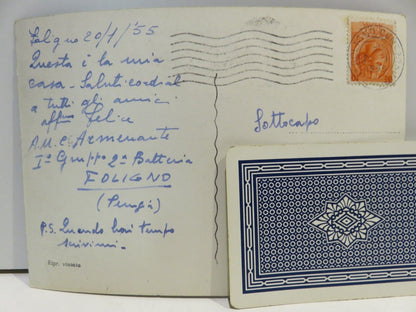 Foligno 20/1/'55
Questa è la mia
casa. Saluti cordiali
a tutti gli amici
aff.mo Felice
A.U.C. Armenante
Iº Gruppo 2ª Batteria
FOLIGNO
(Perugia)
P.S. Quando hai tempo
scrivimi.
Ripr. vietata
Sottocapo